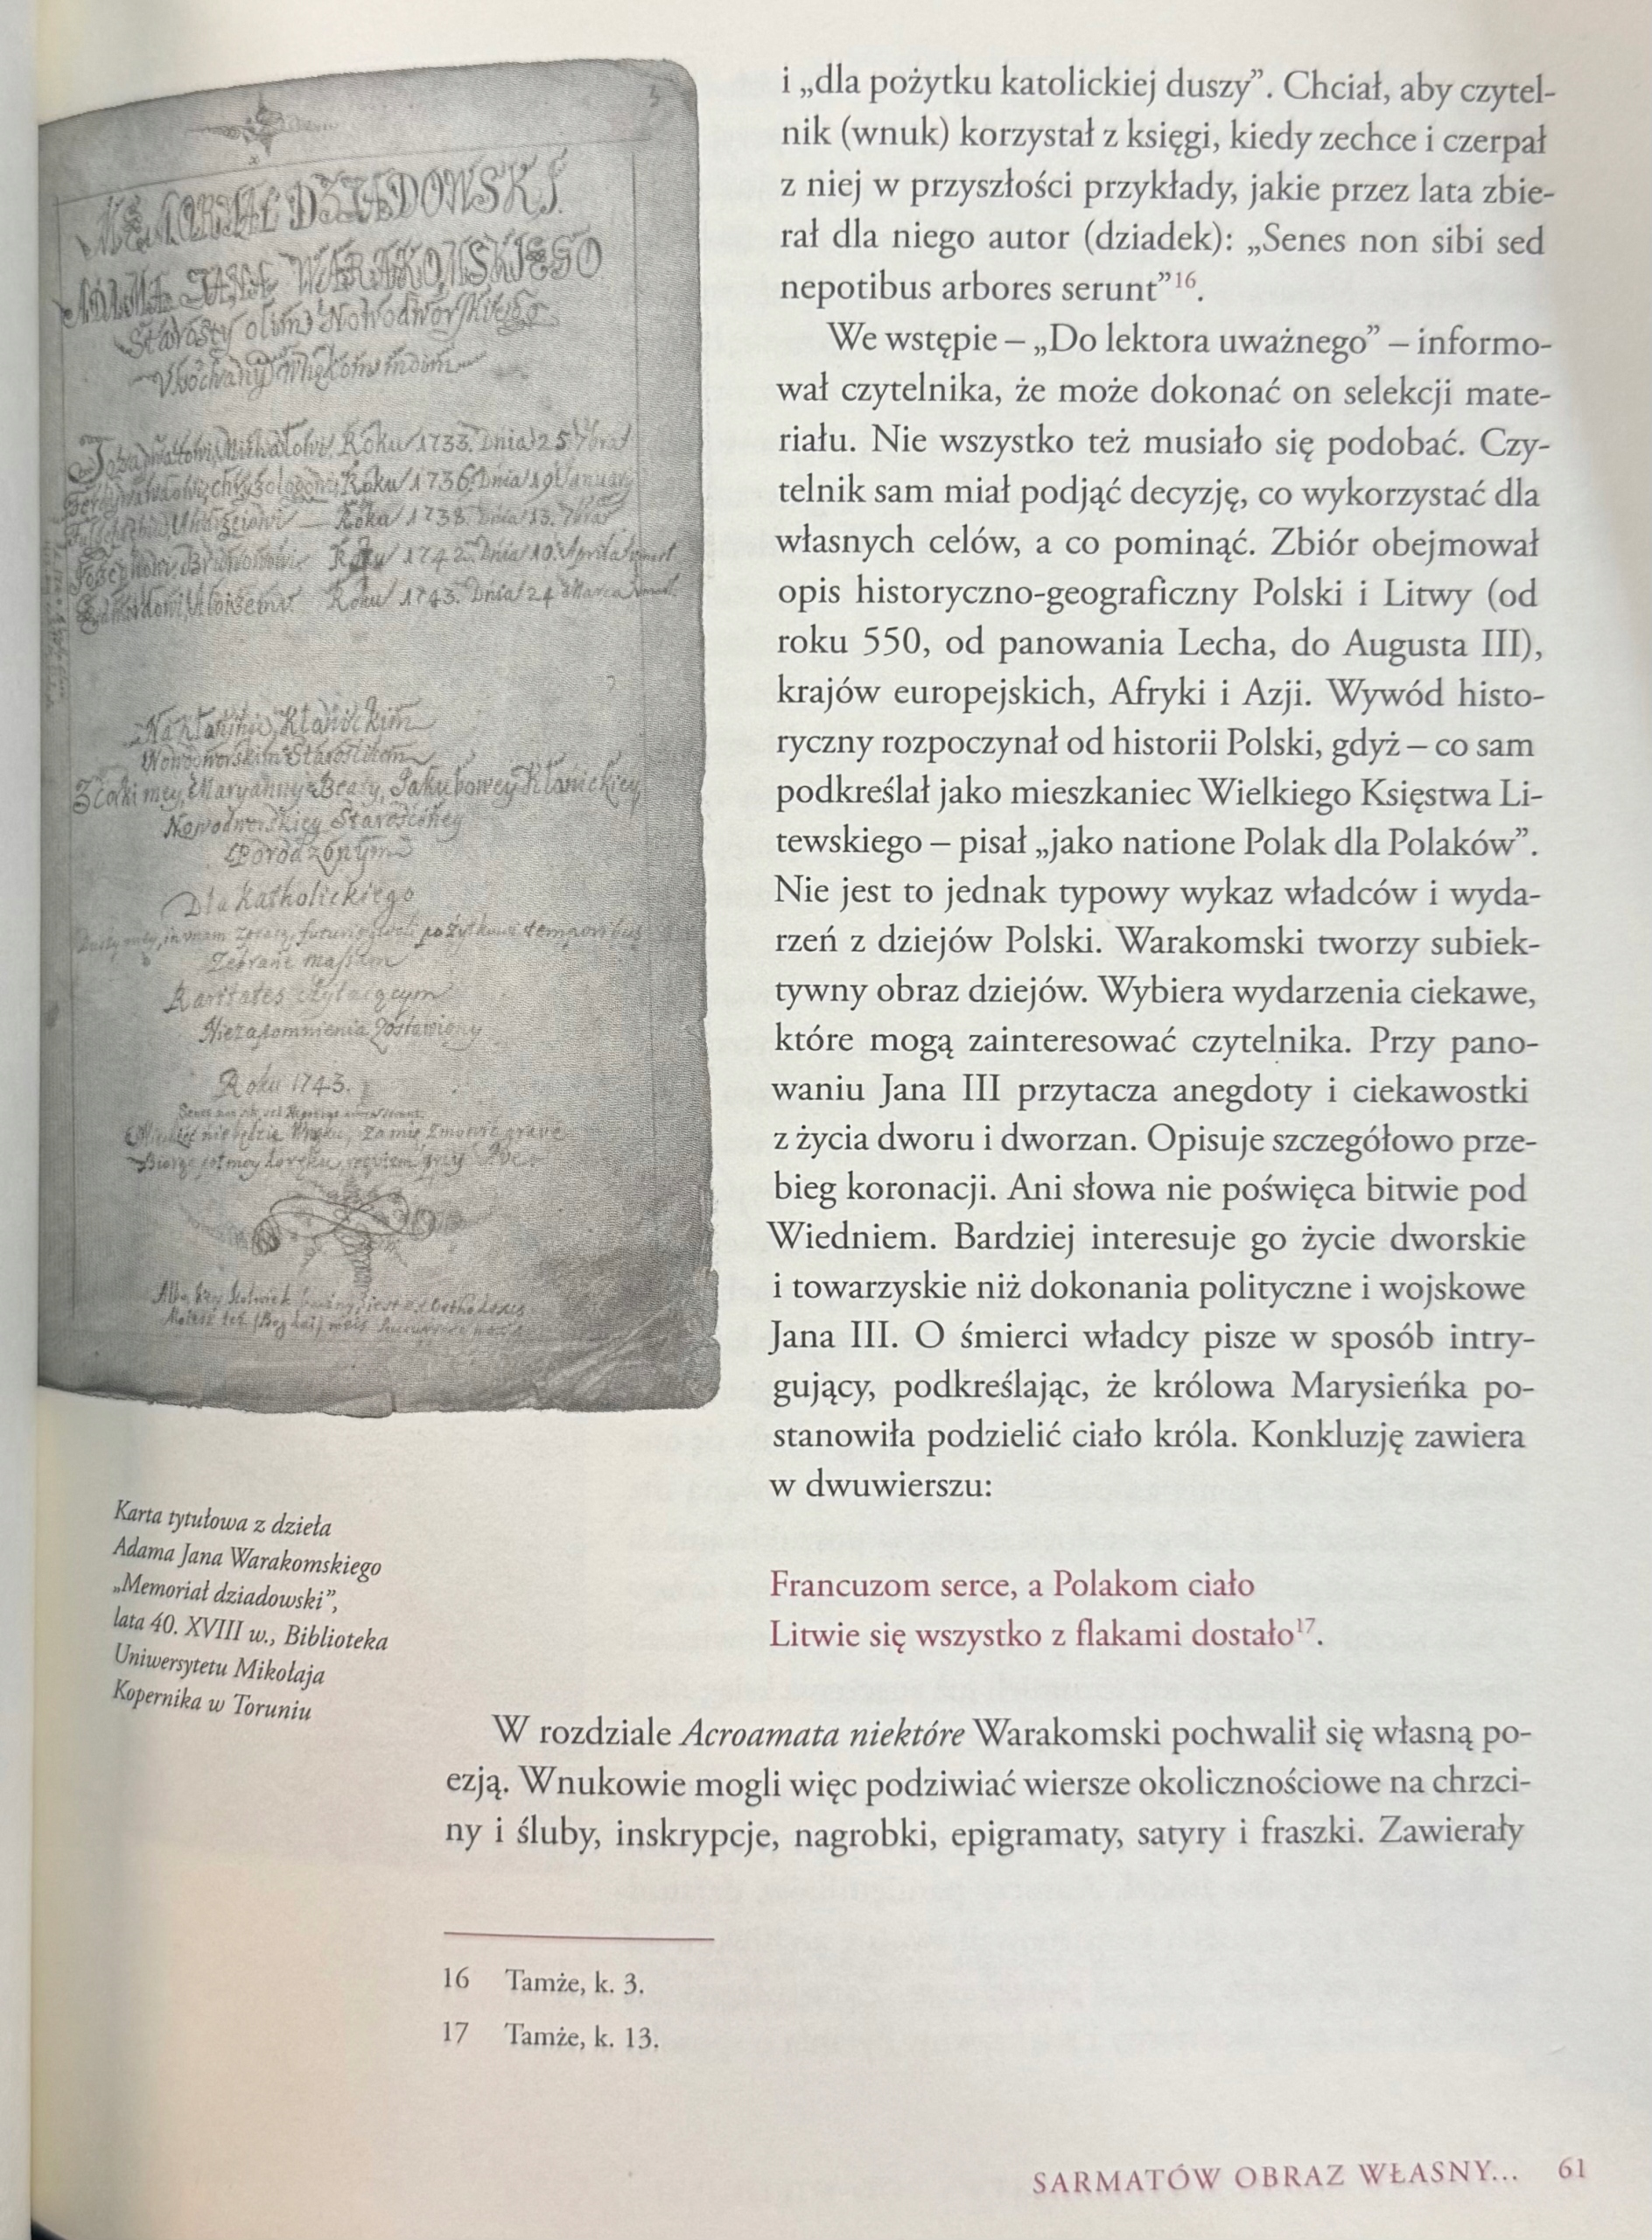 3
MEMORIAŁ DZIADOWSKI
ADAMA JANA WARAKOMSKIEGO
Starosty olim Nowodworskiego
Roku 1733. Dnia 25 7bra
Roku 1736. Dnia 19 January
Roku 1738. Dnia 13. 7bra
Roku 1742. Dnia 10. Aprila
Roku 1743. Dnia 24 Marca
Nowodworskim Starościcom
Z Corki mey, Maryanny Beaty, Jakubowey Kłanickiey
Nowodworskiey Starościney
Porodzonym
Dla Katholickiego
Zebrane
Raritates czytaiącym
Niezapomnienia
Roku 1743.
i „dla pożytku katolickiej duszy”. Chciał, aby czytel-
nik (wnuk) korzystał z księgi, kiedy zechce i czerpał
z niej w przyszłości przykłady, jakie przez lata zbie-
rał dla niego autor (dziadek): „Senes non sibi sed
nepotibus arbores serunt”16.
We wstępie – „Do lektora uważnego” – informo-
wał czytelnika, że może dokonać on selekcji mate-
riału. Nie wszystko też musiało się podobać. Czy-
telnik sam miał podjąć decyzję, co wykorzystać dla
własnych celów, a co pominąć. Zbiór obejmował
opis historyczno-geograficzny Polski i Litwy (od
roku 550, od panowania Lecha, do Augusta III),
krajów europejskich, Afryki i Azji. Wywód histo-
ryczny rozpoczynał od historii Polski, gdyż – co sam
podkreślał jako mieszkaniec Wielkiego Księstwa Li-
tewskiego – pisał „jako natione Polak dla Polaków”.
Nie jest to jednak typowy wykaz władców i wyda-
rzeń z dziejów Polski. Warakomski tworzy subiek-
tywny obraz dziejów. Wybiera wydarzenia ciekawe,
które mogą zainteresować czytelnika. Przy pano-
waniu Jana III przytacza anegdoty i ciekawostki
z życia dworu i dworzan. Opisuje szczegółowo prze-
bieg koronacji. Ani słowa nie poświęca bitwie pod
Wiedniem. Bardziej interesuje go życie dworskie
i towarzyskie niż dokonania polityczne i wojskowe
Jana III. O śmierci władcy pisze w sposób intry-
gujący, podkreślając, że królowa Marysieńka po-
stanowiła podzielić ciało króla. Konkluzję zawiera
w dwuwierszu:
Francuzom serce, a Polakom ciało
Litwie się wszystko z flakami dostało17.
Karta tytułowa z dzieła
Adama Jana Warakomskiego
„Memoriał dziadowski”,
lata 40. XVIII w., Biblioteka
Uniwersytetu Mikołaja
Kopernika w Toruniu
W rozdziale Acroamata niektóre Warakomski pochwalił się własną po-
ezją. Wnukowie mogli więc podziwiać wiersze okolicznościowe na chrzci-
ny i śluby, inskrypcje, nagrobki, epigramaty, satyry i fraszki. Zawierały
16 Tamże, k. 3.
17 Tamże, k. 13.
SARMATÓW OBRAZ WŁASNY... 61